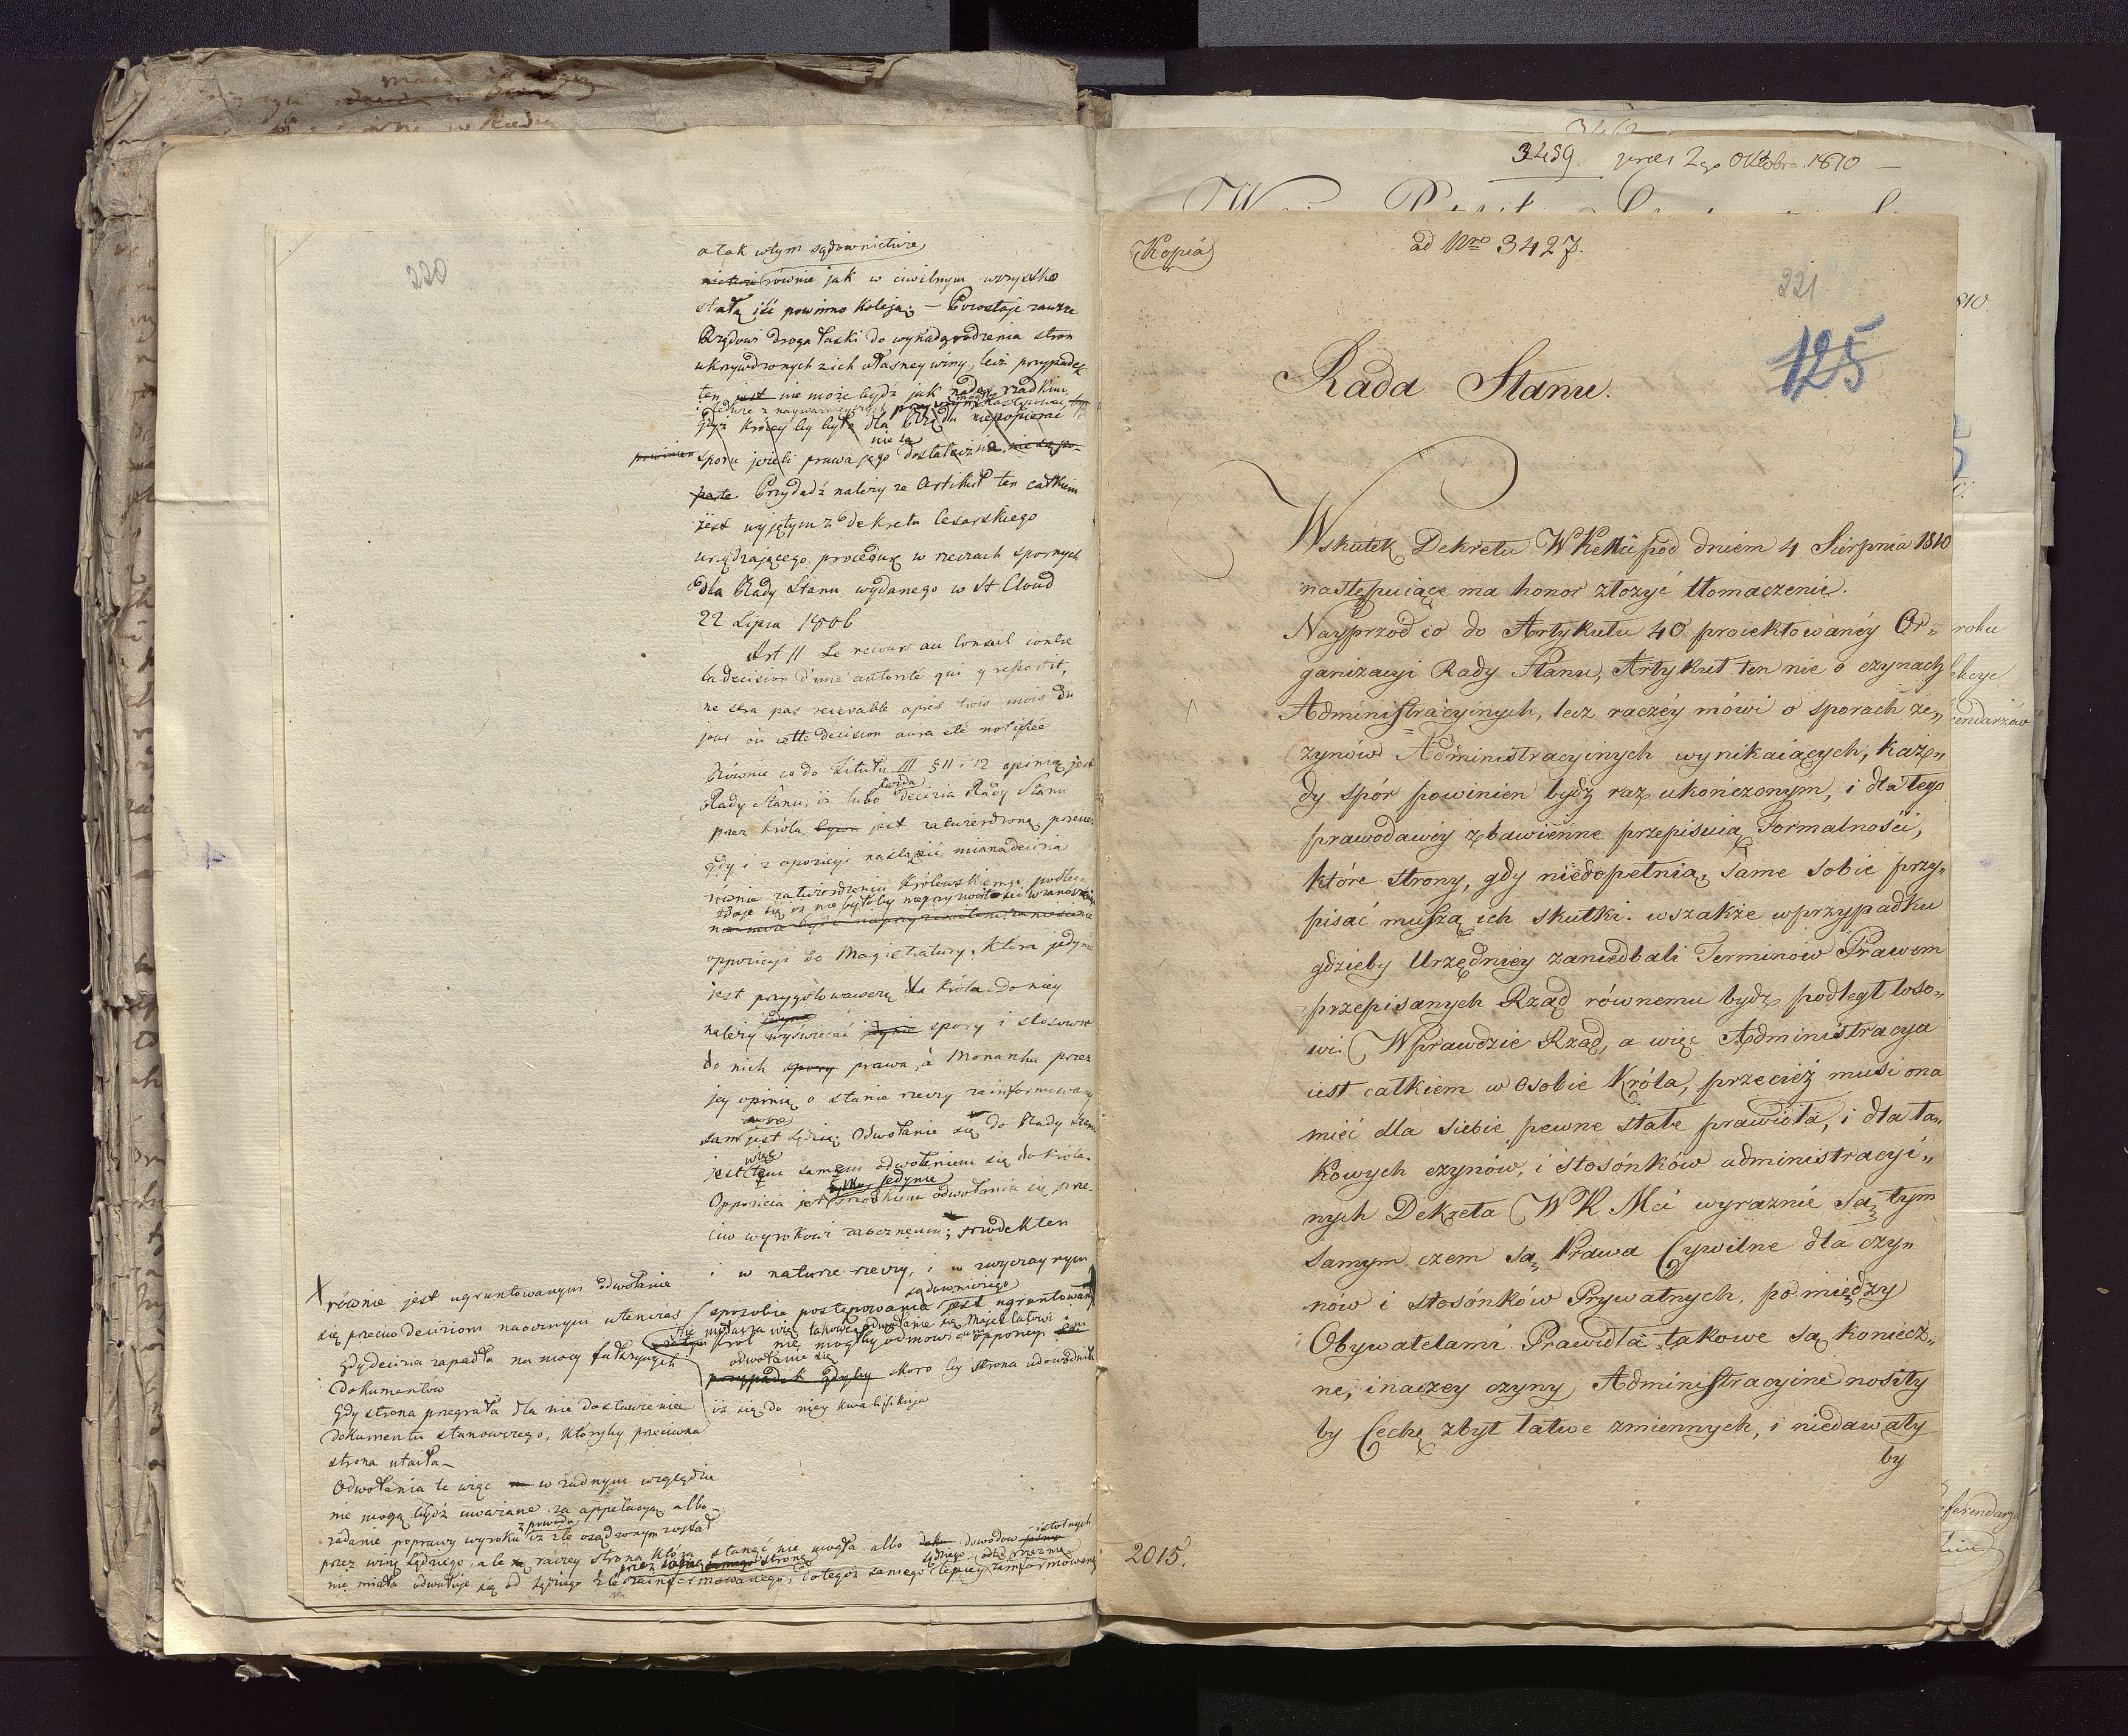 220
a tak w tym sądownictwie
równie jak w cywilnym wszystko
stałą iść powinno koleją; – Pozostaje zawsze
Rządowi droga łaski do wynadgrodzenia stron
ukrzywdzonych z ich własney winy, lecz przypadek
ten jest nie może bydź jak nader rzadkim,
gdyż króley by było dla Urzędu niepopierać
nie są
powinien sporu jeżeli prawa jego dostateczne nie są po-
parte Przydadź należy że Artikuł ten całkiem
jest wyjętym z Dekretu Cesarskiego
urządzającego procedurę w rzeczach spornych
dla Rady Stanu wydanego w St Cloud
22 Lipca 1806
Art 11 Le recours au Conseil contre
la decision d'une autorité qui y ressortit,
ne sera pas recevable après trois mois du
jour où cette decision aura été notifiée
Równie co do Titułu III § 11 i 12 opinią jest
Rady Stanu, iż lubo każda decizia Rady Stanu
przez Króla jest zatwierdzoną, przecież
gdy i z opozicyi nastąpić miana decizia
równie zatwierdzeniu Królewskiemu podlega
zdaje się iż nie byłoby nieprzyzwoitości w zanoszeniu
oppozicyi do Magistratury, która jedynie
jest przygotowawczą dla Króla. Do niey
należy jedynie wyświecać jedynie spory i stosowne
do nich spory prawa, a Monarcha przez
jey opinią o stanie rzeczy zainformowany
sam jest Sędzią; Odwołanie się do Rady Stanu
więc
jest tem samem odwołaniem się do Króla.
tylko jedynie
Oppozicia jest środkiem odwołania się prze-
ciw wyrokowi zaocznemu; srodek ten
i w naturze rzeczy, i w zwyczaynym
sądowniczego
sposobie postępowania jest ugruntowany
odwołanie się
przypadek gdyby skoro by strona udowodniła
iż się do niey kwalifikuje
równie jest ugruntowanym odwołanie
się przeciw deciziom naocznym wtenczas
gdy decizia zapadła na mocy fałszywych
dokumentów
gdy strona przegrała dla nie dostawienia
dokumentu stanowczego, któryby przeciwna
strona utaiła –
Odwołania te więc w żadnym względzie
nie mogą bydź uważane za appellacyą albo
żądanie poprawy wyroku z powodu iż źle osądzonym został
przez winę sędziego, ale raczey strona która stanąć nie mogła albo dowodow istotnych
nie miała odwołuje się od Sędziego źle zainformowanego, do tegoż samego lepiey zainformowanego
3459. prez 2go Oktobra 1810 –
Kopia
ad Nro 3427.
221
125
Rada Stanu.
Wskutek Dekretu WKMci pod dniem 4 Sierpnia 1810
następuiące ma honor złożyć tłomaczenie.
Nayprzod co do Artykułu 40 proiektowanéy Or„
ganizacyi Rady Stanu, Artykuł ten nie o czynach
Administracyinych, lecz raczéy mówi o sporach ze„
czynów Administracyinych wynikaiących, każ„
dy spór powinien bydź raz ukończonym, i dla tego
prawodawcy zbawienne przepisuią Formalności,
które strony, gdy niedopełnią, same sobie przy„
pisać muszą ich skutki. wszakże w przypadku
gdzieby Urzędnicy zaniedbali Terminow Prawem
przepisanych Rząd równemu bydź podległ loso„
wi. Wprawdzie Rząd, a więc Administracya
iest całkiem w Osobie Króla, przecież musi ona
mieć dla siebie pewne stałe prawidła, i dla ta„
kowych czynów, i stosónków administracyi„
nych Dekreta WKMci wyraznie są tym
samym czem są Prawa Cywilne dla czy„
nów i stosónków Prywatnych, pomiędzy
Obywatelami. Prawidła takowe są koniecz„
ne, inaczey czyny Administracyine nosiły
by Cechę zbyt łatwo zmiennych, i niedawały
by
2015.